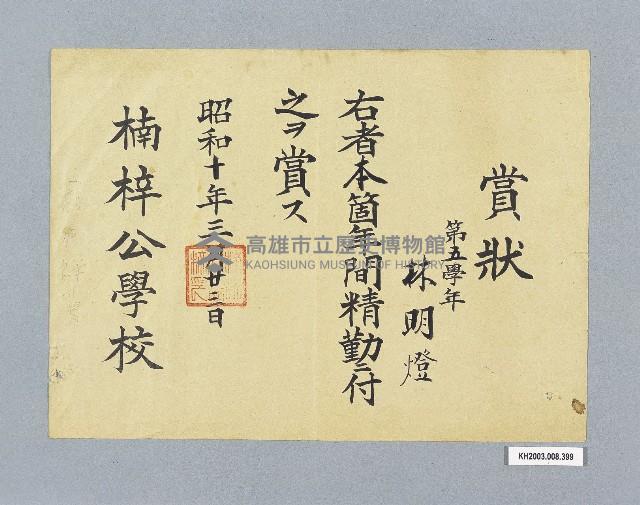 賞狀
第五學年
林明燈
右者本箇年間精勤ニ付
之ヲ賞ス
昭和十年三月廿三日
楠梓公學校
高雄市立歷史博物館
KAOHSIUNG MUSEUM OF HISTORY
KH2003.008.399